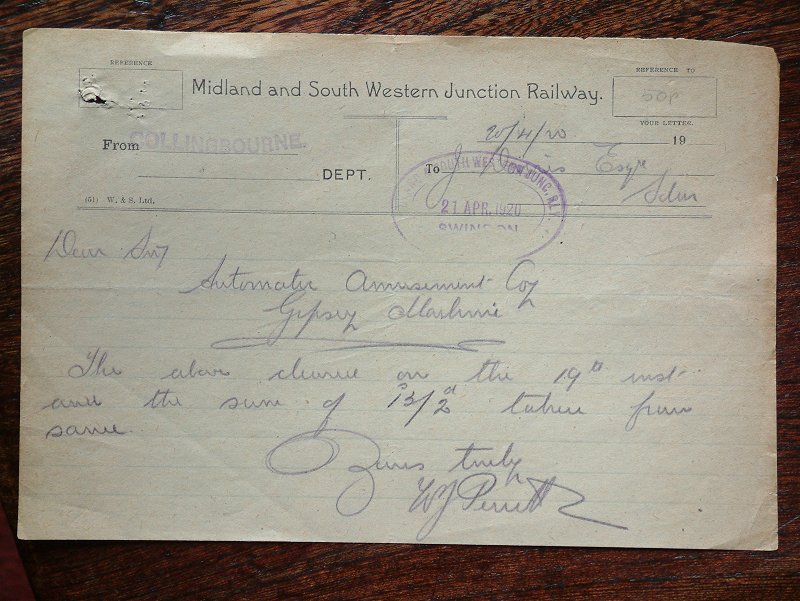 REFERENCE
REFERENCE TO
Midland and South Western Junction Railway.
50P
YOUR LETTER.
20/4/20 19
From COLLINGBOURNE.
To J Esqre
DEPT.
Sdn
SOUTH WESTERN JUNC. RLY.
21 APR. 1920
SWINDON
(51) W. & S. Ltd.
Dear Sir
Automatic Amusement Coy
Gipsey Machine
The above cleared on the 19th inst
and the sum of 13s/2d taken from
same.
Yours truly
WJ Perrett